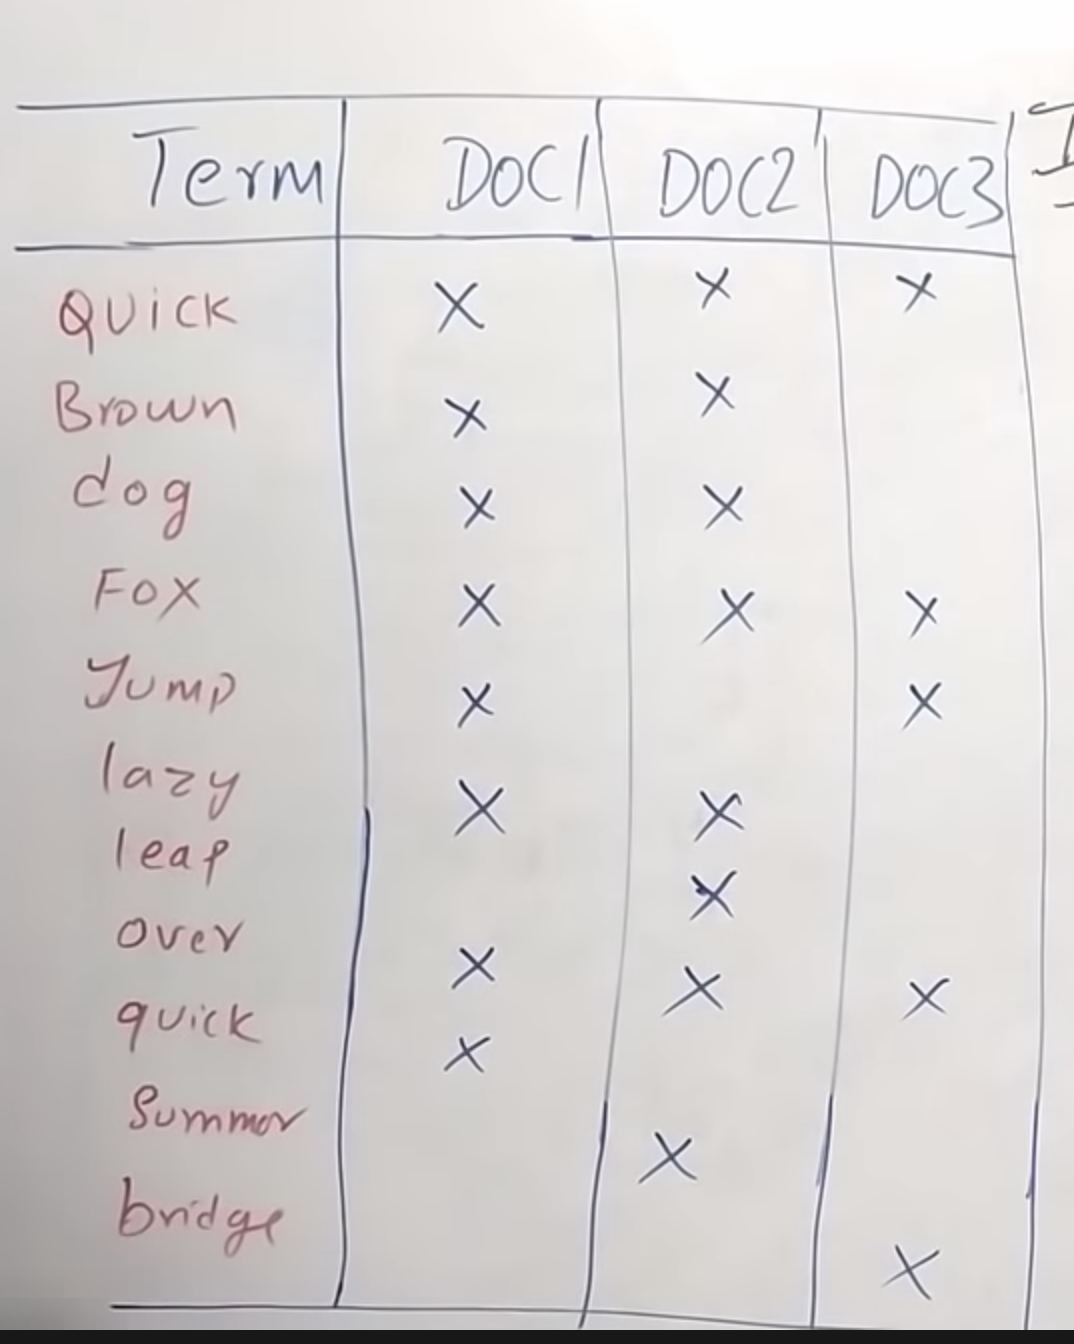 Term DOC1 DOC2 DOC3
Quick X X X
Brown X X
dog X X
Fox X X X
Jump X X
lazy X X
leap X
over X X X
quick X
Summer X
bridge X